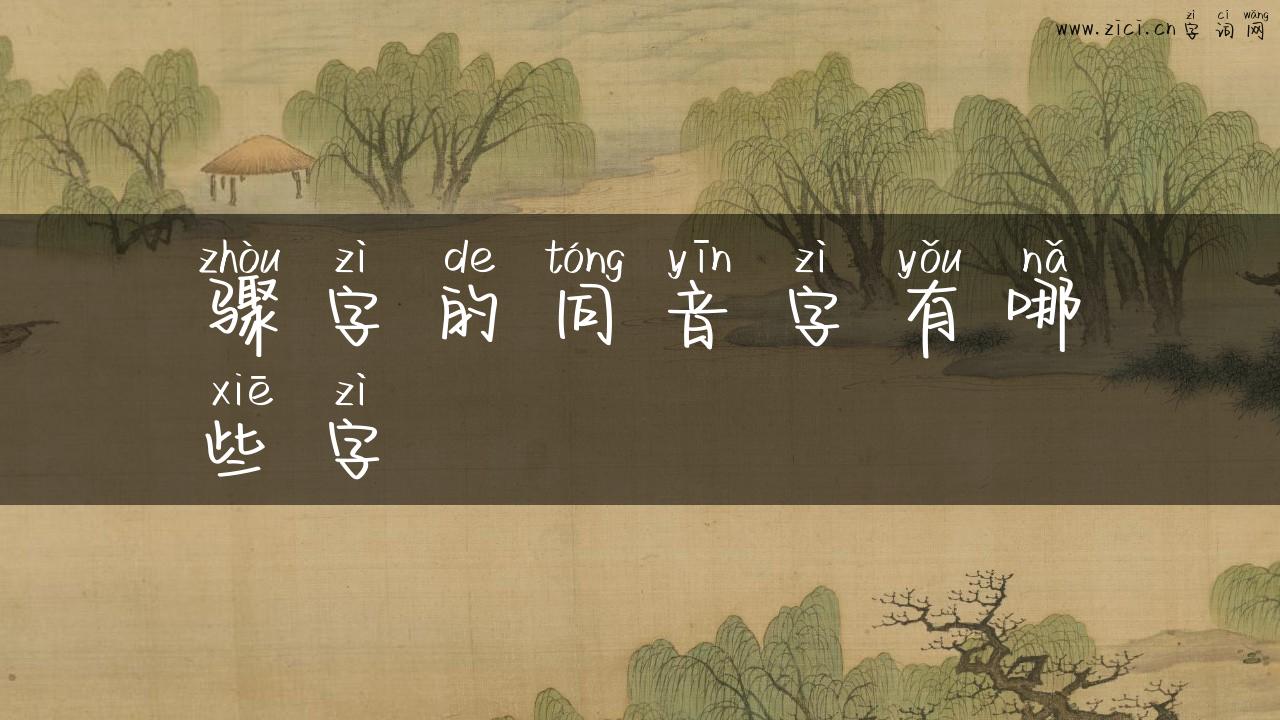 zì cí wǎng
www.zici.cn字词网
zhòu zì de tóng yīn zì yǒu nǎ
骤字的同音字有哪
xiē zì
些字